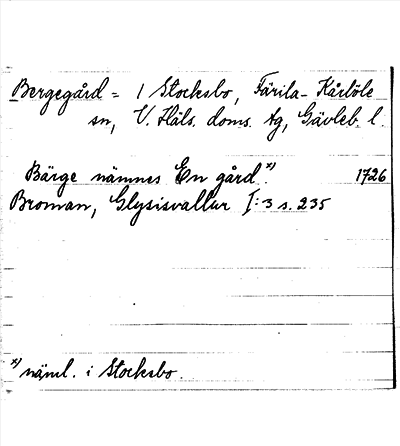 Bergegård = i Stocksbo, Färila-Kårböle
sn, V. Häls. doms. tg, Gävleb. l.
Bärge nämnes En gård.x) 1726
Broman, Glysisvallur I:3 s. 235
x) näml. i Stocksbo.